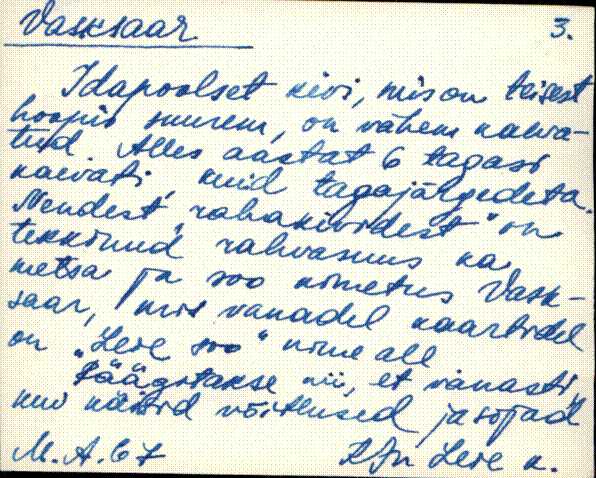 Vasksaar 3.
Idapoolset kivi, mis on teisest
hoopis suurem, on vähem kaeva-
tud. Alles aastat 6 tagasi
kaevati, kuid tagajärgedeta.
Nendest "rahakividest" on
tekkinud rahvasuus ka
metsa ja soo nimetus Vask-
saar, mis vanadel kaartidel
on "Leie soo" nime all
Räägitakse nii, et vanasti
kui käisid võitlused ja sõjad
M. A. 67 Leie k.